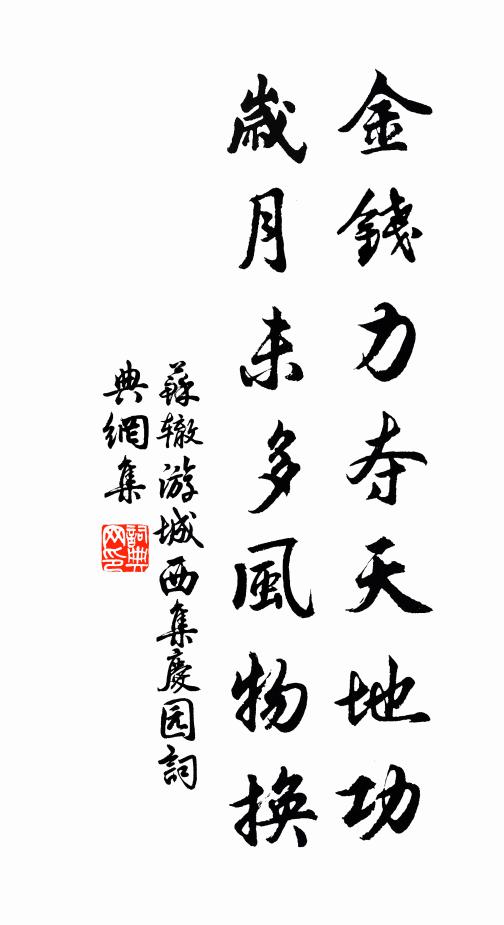 金錢力夺天地功
歲月未多風物換
蘇辙游城西集慶园詞
典網集
詞典
网印